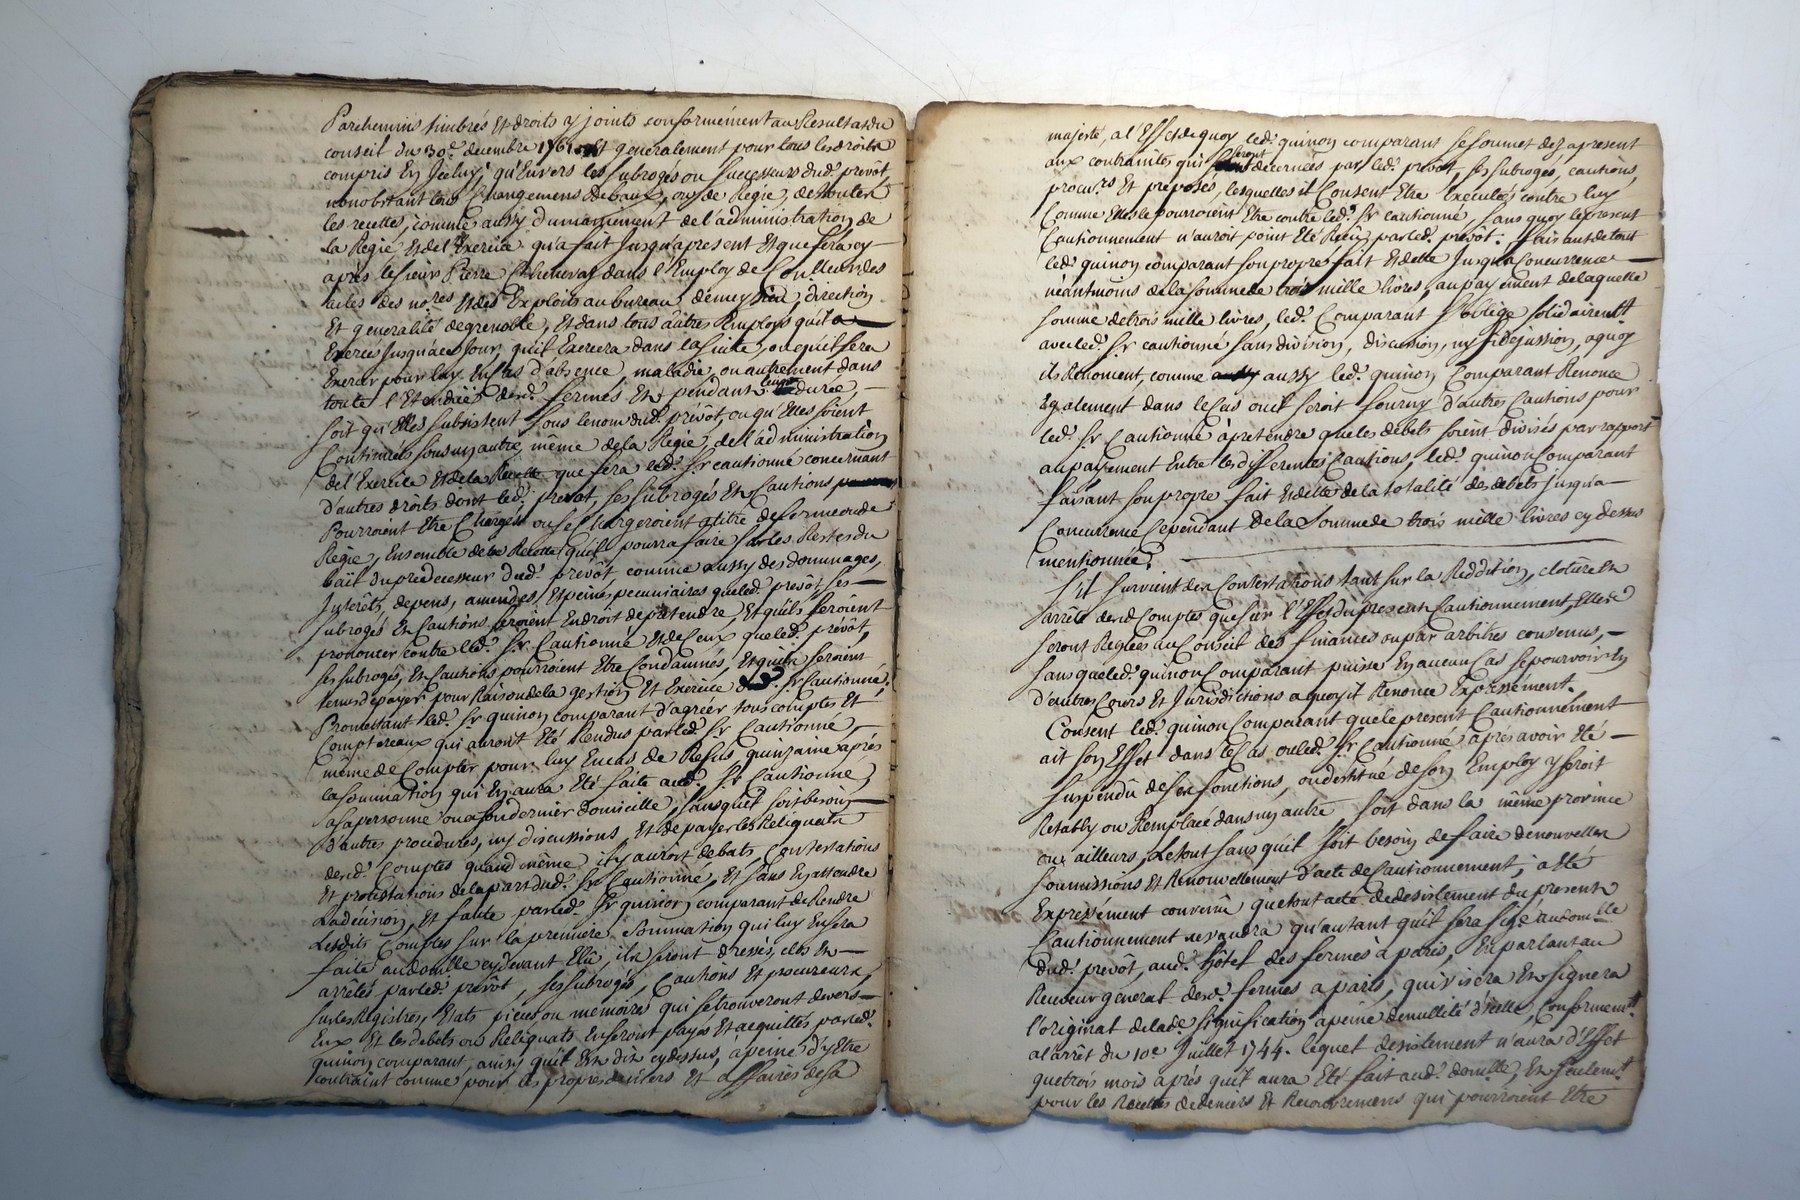 Parchemins timbrés Et droits y joints conformément au Resultat du
conseil du 30e. decembre 1761. Et generalement pour tous les droits
compris En Iceluy, qu'Envers les subrogés ou successeurs dud. prevôt,
nonobstant tous Changemens de baux, ou de Regie, de toutes
les recettes, comme aussy du maniment de l'administration de
la Regie, Et de l'Exercice qu'a fait Jusqu'apresent Et que fera cy
après le sieur Pierre Chenevas dans l'Employ de Controlleur des
actes des no.res Et des Exploits au bureau de meyssieu, direction
Et generalité de grenoble, Et dans tous autres Employs qu'il a
Exercé Jusqu'a ce Jour, qu'il Exercera dans la suite, ou qu'il fera
Exercer pour luy En Cas d'absence, maladie, ou autrement dans
toute l'Etenduë desd. fermes Et pendant leur durée
soit qu'Elles subsistent sous le nom dud. prevôt, ou qu'Elles soient
Continuées sous un autre, même de la Regie, de l'administration
de l'Exercice Et de la Recette que fera led. Sr cautionné concernant
d'autres droits dont led. prevot, ses subrogés Et Cautions
Pourroient Etre Chargés ou se Chargeroient a titre de ferme ou de
Regie, Ensemble de la Recette qu'il pourra faire sur les Restes du
bail du predecesseur dud. prevôt comme aussy des dommages,
Interêts, depens, amendes Et peines pecuniaires que led. prevôt, ses
subrogés Et Cautions seroient En droit de pretendre, Et qu'ils feroient
prononcer contre led. Sr. Cautionné Et de Ceux que led. prevôt,
ses subrogés, Et Cautions pourroient Etre Condamnés, Et qu'ils seroient
tenus de payer pour Raison de la gestion Et Exercice dud. Sr Cautionné;
Promettant led. Sr quinon comparant d'agréer tous comptes Et
Comptereaux qui auront Eté Rendus par led. Sr Cautionné,
même de Compter pour luy En cas de Refus quinzaine après
la sommation qui En aura Eté faite aud. Sr Cautionné,
a sa personne ou a son dernier Domicille, sans qu'il soit besoin
d'autres procedures, ny discussions, Et de payer les Reliquats
desd. Comptes quand même il y auroit debats Contestations
Et protestations de la part dud. Sr Cautionné, Et sans En attendre
La decision, Et faute par led. Sr quinon comparant de Rendre
Lesdits Comptes sur la premiere Sommation qui luy En sera
faite au domille cy devant Elû, ils seront dressés, clos Et
arrêtés par led. prevôt, ses subrogés, Cautions Et procureurs,
sur les Registres, Etats pieces ou memoires qui se trouveront devers
Eux Et les debets ou Reliquats En seront payés Et acquittés par led.
quinon comparant, ainsy qu'il Est dit cy dessus, a peine d'y Etre
contraint comme pour les propres deniers Et affaires de sa
majesté, a l'Effet de quoy led. quinon comparant se soumet dez apresent
aux contraintes qui seront decernées par led. prevôt, ses subrogés, cautions,
procu.rs Et preposés, lesquelles il Consent Etre Executées contre luy
Comme Elles le pourroient Etre contre led. Sr cautionné, sans quoy le present
Cautionnement n'auroit point Eté Reçu par led. prevôt. faisant de tout
led. quinon comparant son propre fait Et dette Jusqu'a Concurrence
néantmoins de la somme de trois mille livres, au payement de laquelle
somme de trois mille livres, led. Comparant s'oblige solidairemt
avec led. Sr cautionné sans division, discussion, ny fidejussion, a quoy
ils Renoncent, comme aussy led. quinon Comparant Renonce
Egalement dans le Cas ou il seroit fourny d'autres Cautions pour
led. Sr Cautionné à pretendre que les debets soient divisés par rapport
au payement Entre les differentes Cautions, led. quinon Comparant
faisant son propre fait Et dette de la totalité des debets jusqu'a
Concurrence Cependant de la Somme de trois mille livres cy dessus
mentionnée.
S'il survient des Contestations tant sur la Reddition, cloture Et
arrêté desd. Comptes que sur l'Effet du present Cautionnement, Elles
seront Reglées au Conseil des finances ou par arbitres convenus,
sans que led. quinon Comparant puisse En aucun Cas se pourvoir En
d'autres Cours Et Jurisdictions a quoy il Renonce Expressément.
Consent led. quinon Comparant que le present Cautionnement
ait son Effet dans le Cas ou led. Sr Cautionné après avoir Eté
suspendu de ses fonctions, ou destitué de son Employ y seroit
Retably ou Remplacé dans un autre soit dans la même province
ou ailleurs, Le tout sans qu'il soit besoin de faire de nouvelles
soumissions Et Renouvellement d'acte de Cautionnement; a Eté
Expressément convenu que tout acte de desistement du present
Cautionnement ne vaudra qu'autant qu'il sera sig.é au dom.lle
dud. prevôt, aud. hôtel des fermes à paris, En parlant au
Receveur general desd. fermes a paris, qui visera Et signera
l'original de lad. signification à peine de nullité d'icelle, Conformemt.
a l'arrêt du 10e Juillet 1744. lequel desistement n'aura d'Effet
que trois mois après qu'il aura Eté fait aud. domille, Et seulemt.
pour les Recettes de deniers Et Recouvremens qui pourroient Etre